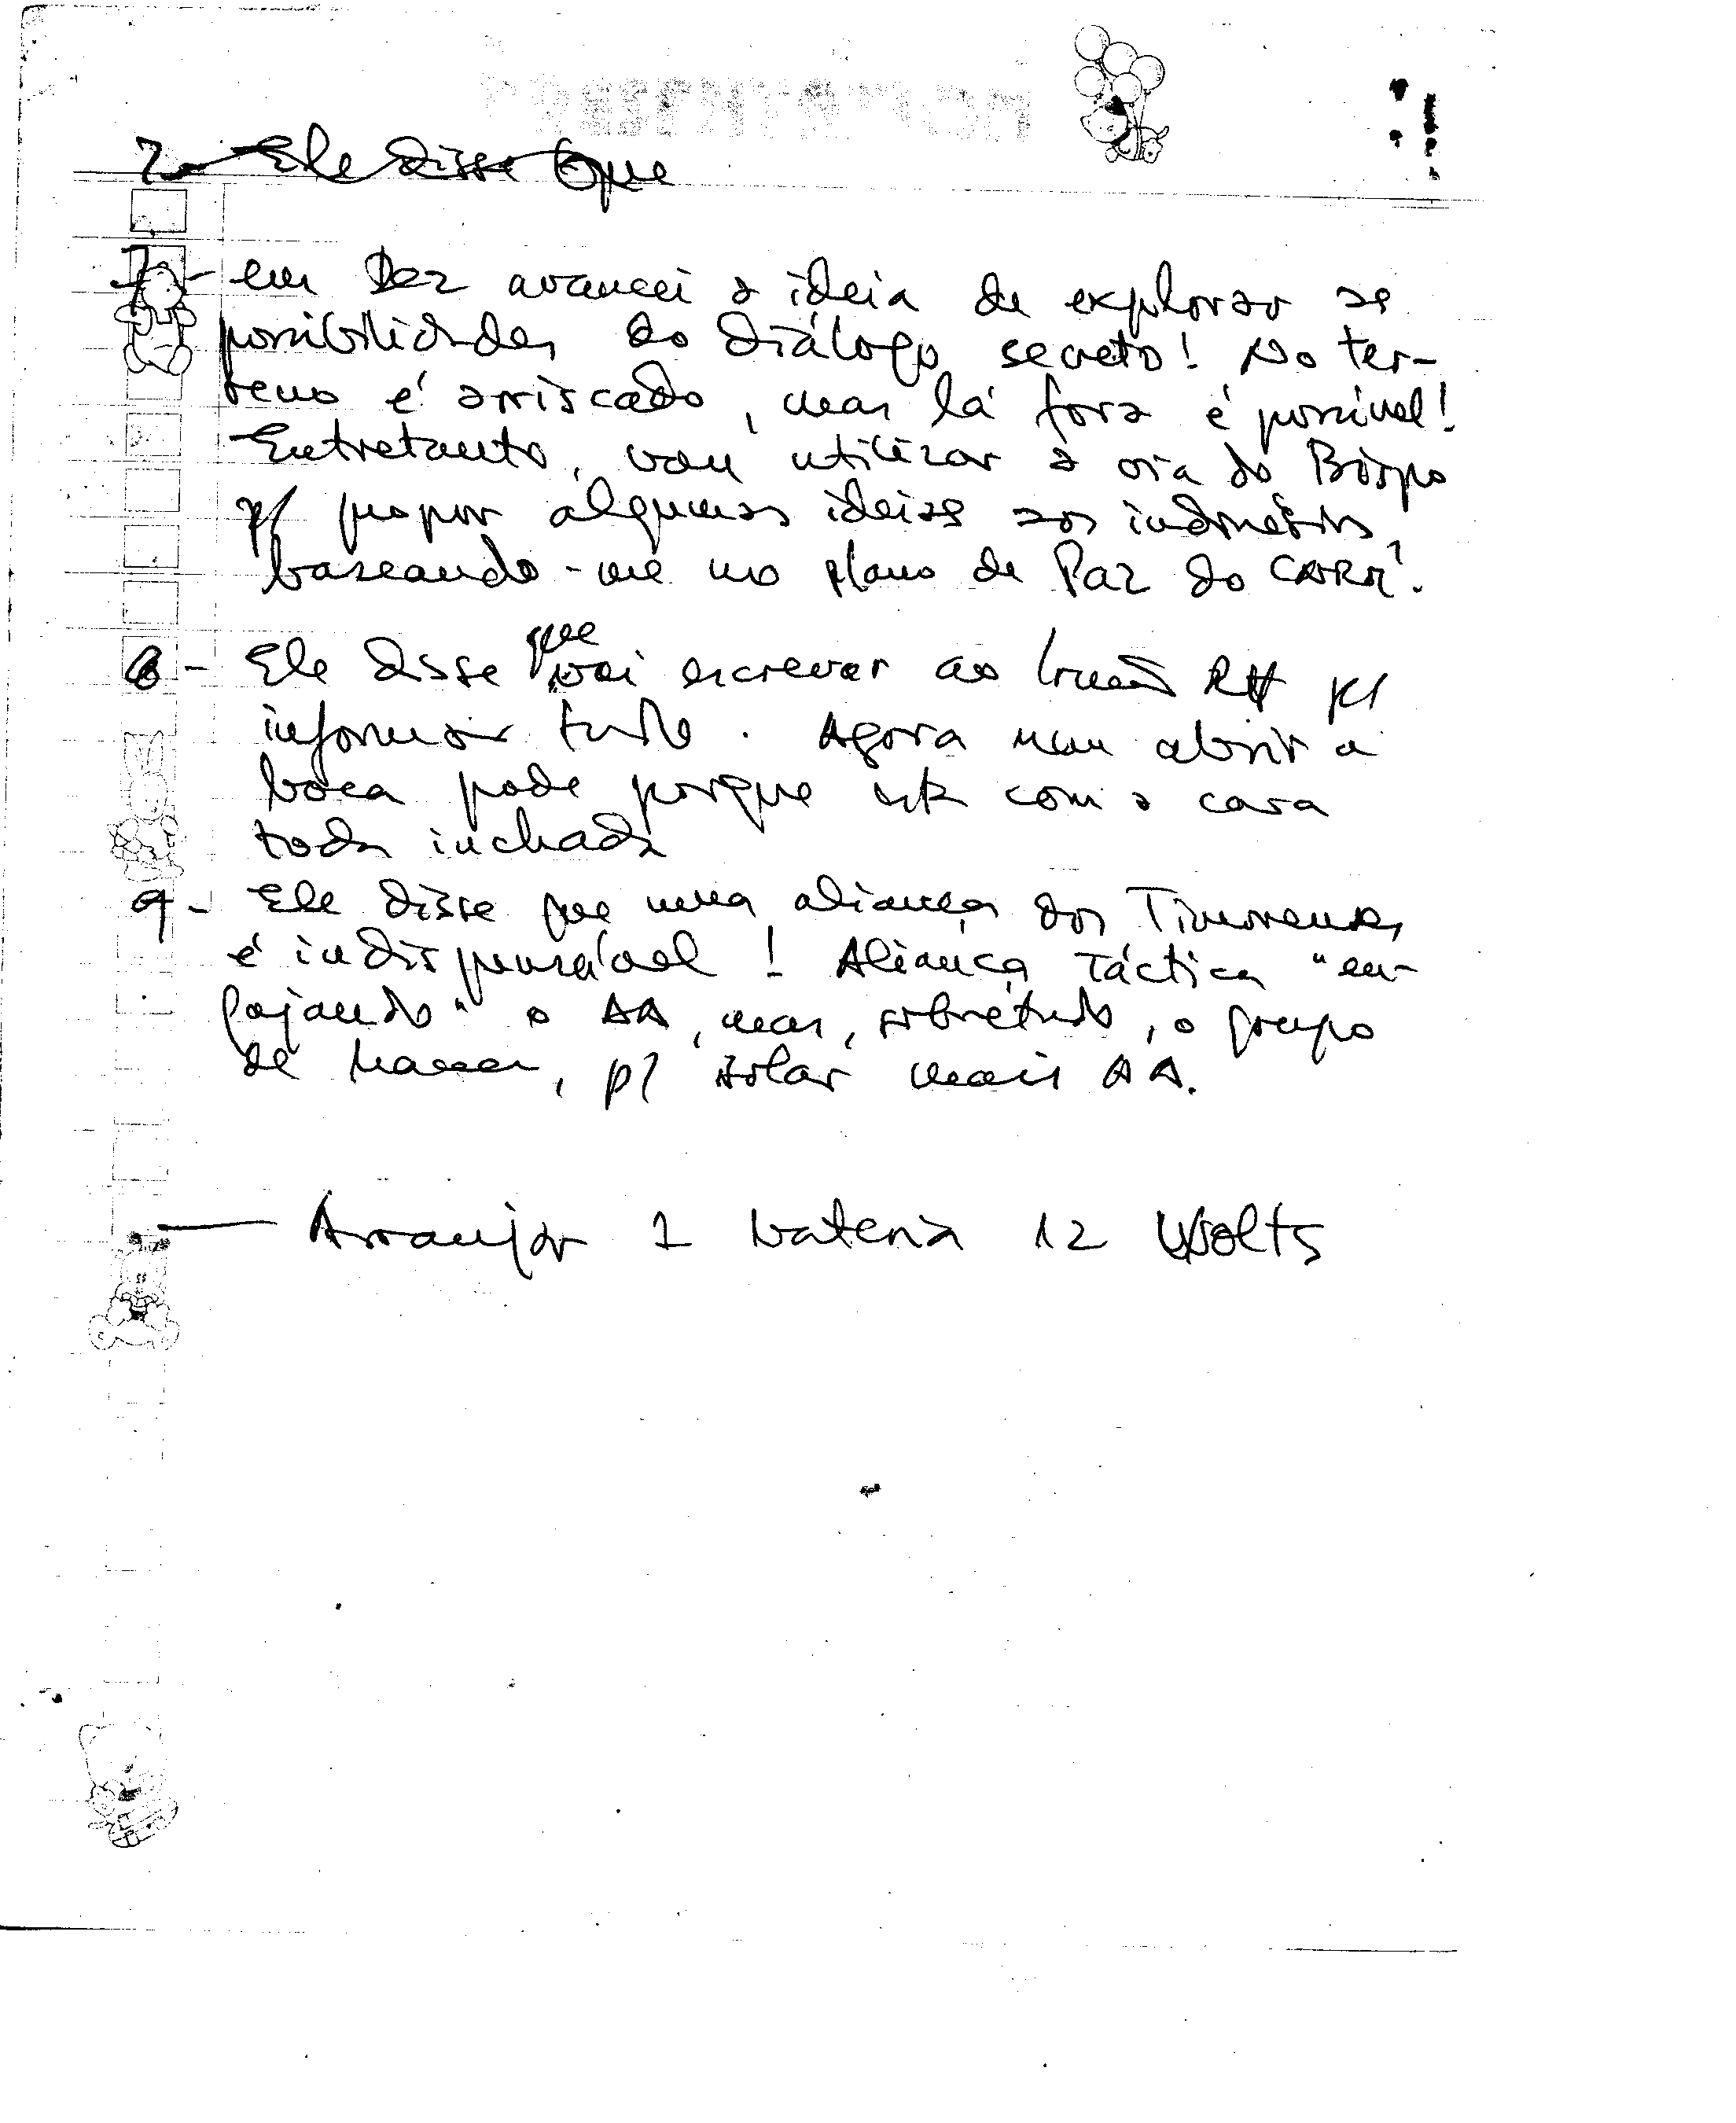 7- Ele disse que
7- em Dez avancei a ideia de explorar as
possibilidades do diálogo secreto! No ter-
reno é arriscado, mas lá fora é possível!
Entretanto, vou utilizar a via do Bispo
p/ propor algumas ideias aos indonésios,
baseando-me no plano de Paz do CNRM.
8- Ele disse que vai escrever ao Irmão RH p/
informar tudo. Agora nem abrir a
boca pode porque está com a cara
toda inchada
9- Ele disse que uma aliança dos Timorenses
é indispensável! Aliança Táctica "en-
gajando" o AA, mas, sobretudo, o grupo
de, p/ isolar mais AA.
— Arranjar 1 bateria 12 Volts